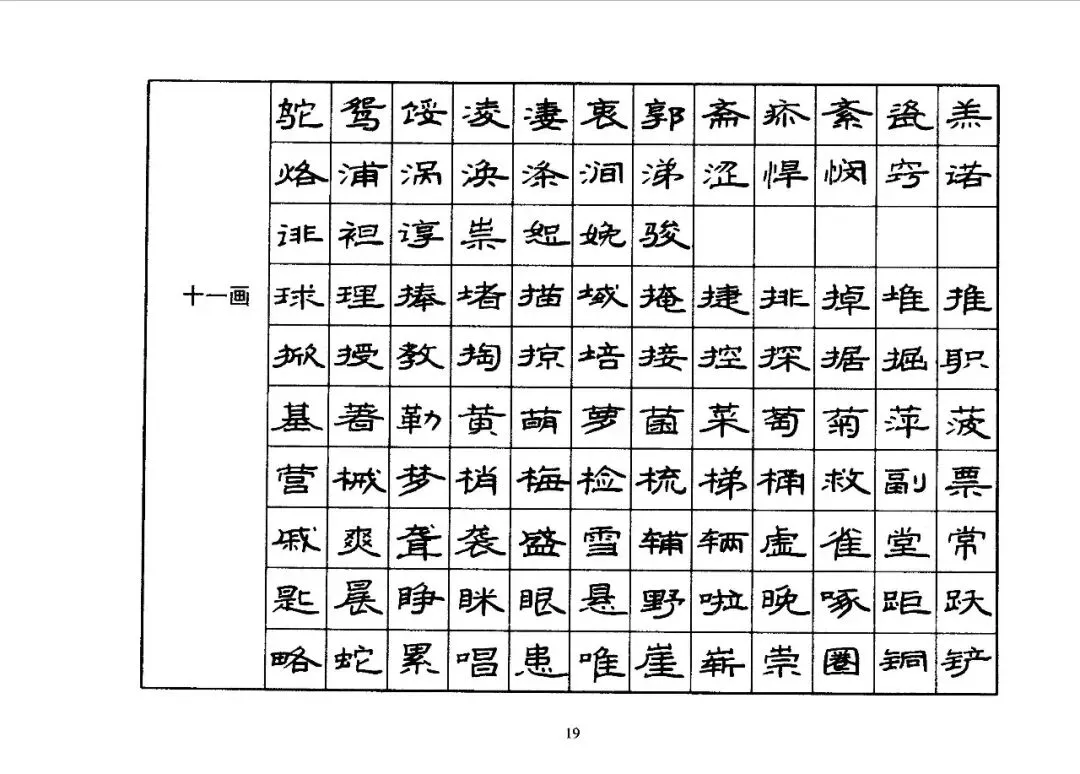 鸵鸳馁凌凄衷郭斋疹紊瓷羔
烙浦涡涣涤涧涕涩悍悯窍诺
诽袒谆祟恕娩骏
十一画 球理捧堵描域掩捷排掉堆推
掀授教掏掠培接控探据掘职
基著勒黄萌萝菌菜萄菊萍菠
营械梦梢梅检梳梯桶救副票
戚爽聋袭盛雪辅辆虚雀堂常
匙晨睁眯眼悬野啦晚啄距跃
略蛇累唱患唯崖崭崇圈铜铲
19